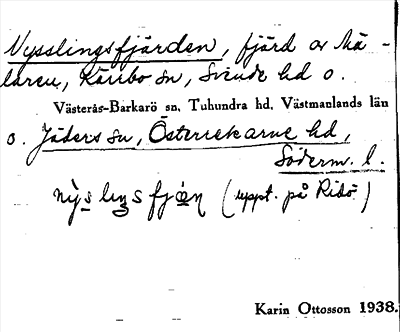 Nysslingsfjärden, fjärd av Mä-
laren, Kärrbo sn, Siende hd o.
Västerås-Barkarö sn, Tuhundra hd, Västmanlands län
o. Jäders sn, Österrekarne hd,
Söderm. l.
(uppt. på Ridö)
Karin Ottosson 1938.